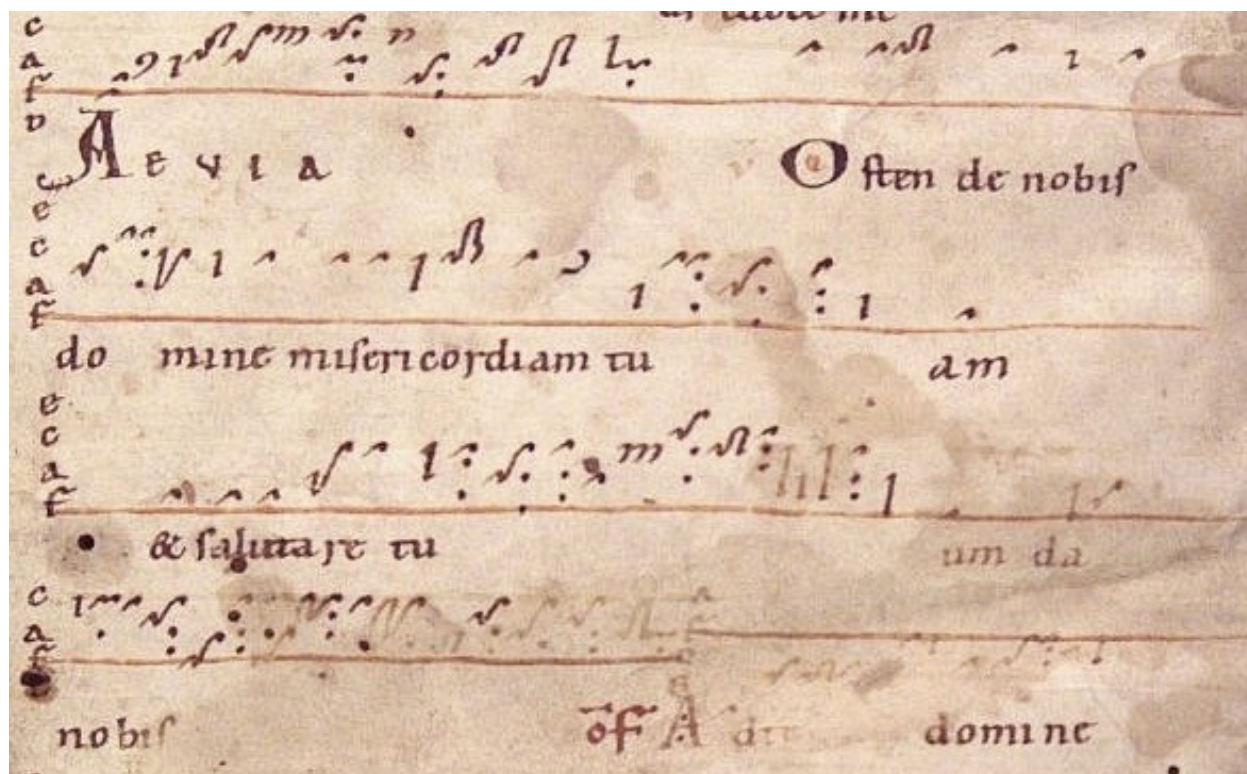 A evia Ostende nobis
do mine misericordiam tu am
& salutare tu um da
nobis of A d domine